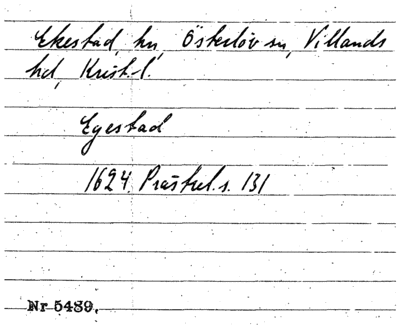 Ekestad, hn, Österlöv sn, Villands
hd, Krist. l.
Egestad
1624. Prästrel. s. 131
Nr 5489.